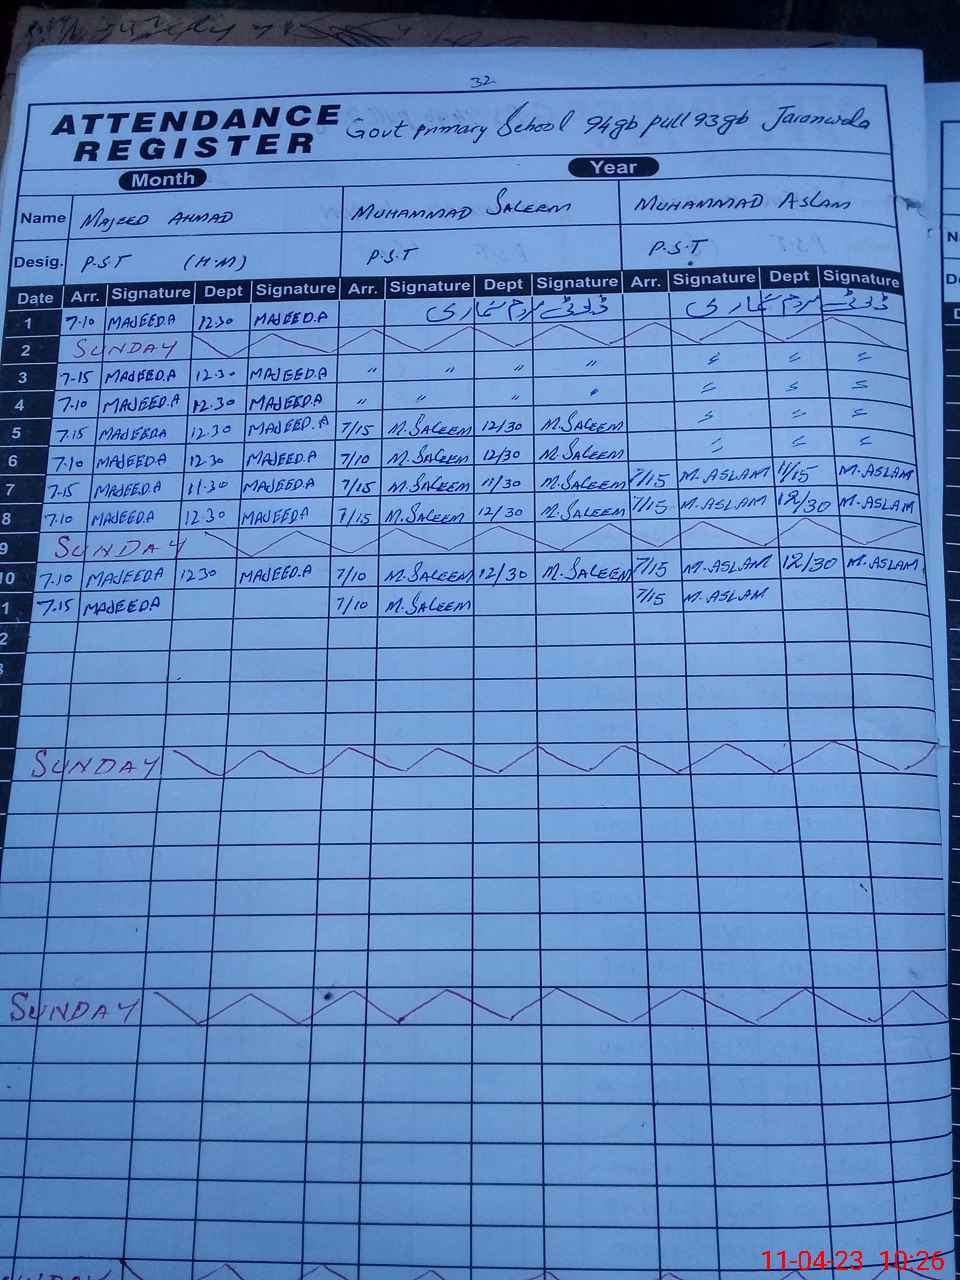 32
ATTENDANCE REGISTER Govt primary School 94gb pull 93gb Jaranwala
Month Year
Name MAJEED AHMAD MUHAMMAD SALEEM MUHAMMAD ASLAM
Desig. P.S.T (H.M) P.S.T P.S.T
Date Arr. Signature Dept Signature Arr. Signature Dept Signature Arr. Signature Dept Signature
1 7-10 MAJEED.A 12.30 MAJEED.A ڈیوٹی مردم شماری ڈیوٹی مردم شماری
2 SUNDAY
3 7-15 MAJEED.A 12.30 MAJEED.A " " " " " " "
4 7-10 MAJEED.A 12.30 MAJEED.A " " " " " " "
5 7.15 MAJEEDA 12.30 MAJEED.A 7/15 M.SALEEM 12/30 M.SALEEM " " "
6 7.10 MAJEED.A 12.30 MAJEED.A 7/10 M.SALEEM 12/30 M.SALEEM " " "
7 7-15 MAJEED.A 11.30 MAJEED.A 7/15 M.SALEEM 11/30 M.SALEEM 7/15 M.ASLAM 11/15 M.ASLAM
8 7.10 MAJEED.A 12.30 MAJEED.A 7/15 M.SALEEM 12/30 M.SALEEM 7/15 M.ASLAM 12/30 M.ASLAM
9 SUNDAY
10 7.10 MAJEED.A 1230 MAJEED.A 7/10 M.SALEEM 12/30 M.SALEEM 7/15 M.ASLAM 12/30 M.ASLAM
1 7.15 MAJEEDA 7/10 M.SALEEM 7/15 M.ASLAM
2
3
SUNDAY
SUNDAY
SUNDAY
11-04-23 10:26